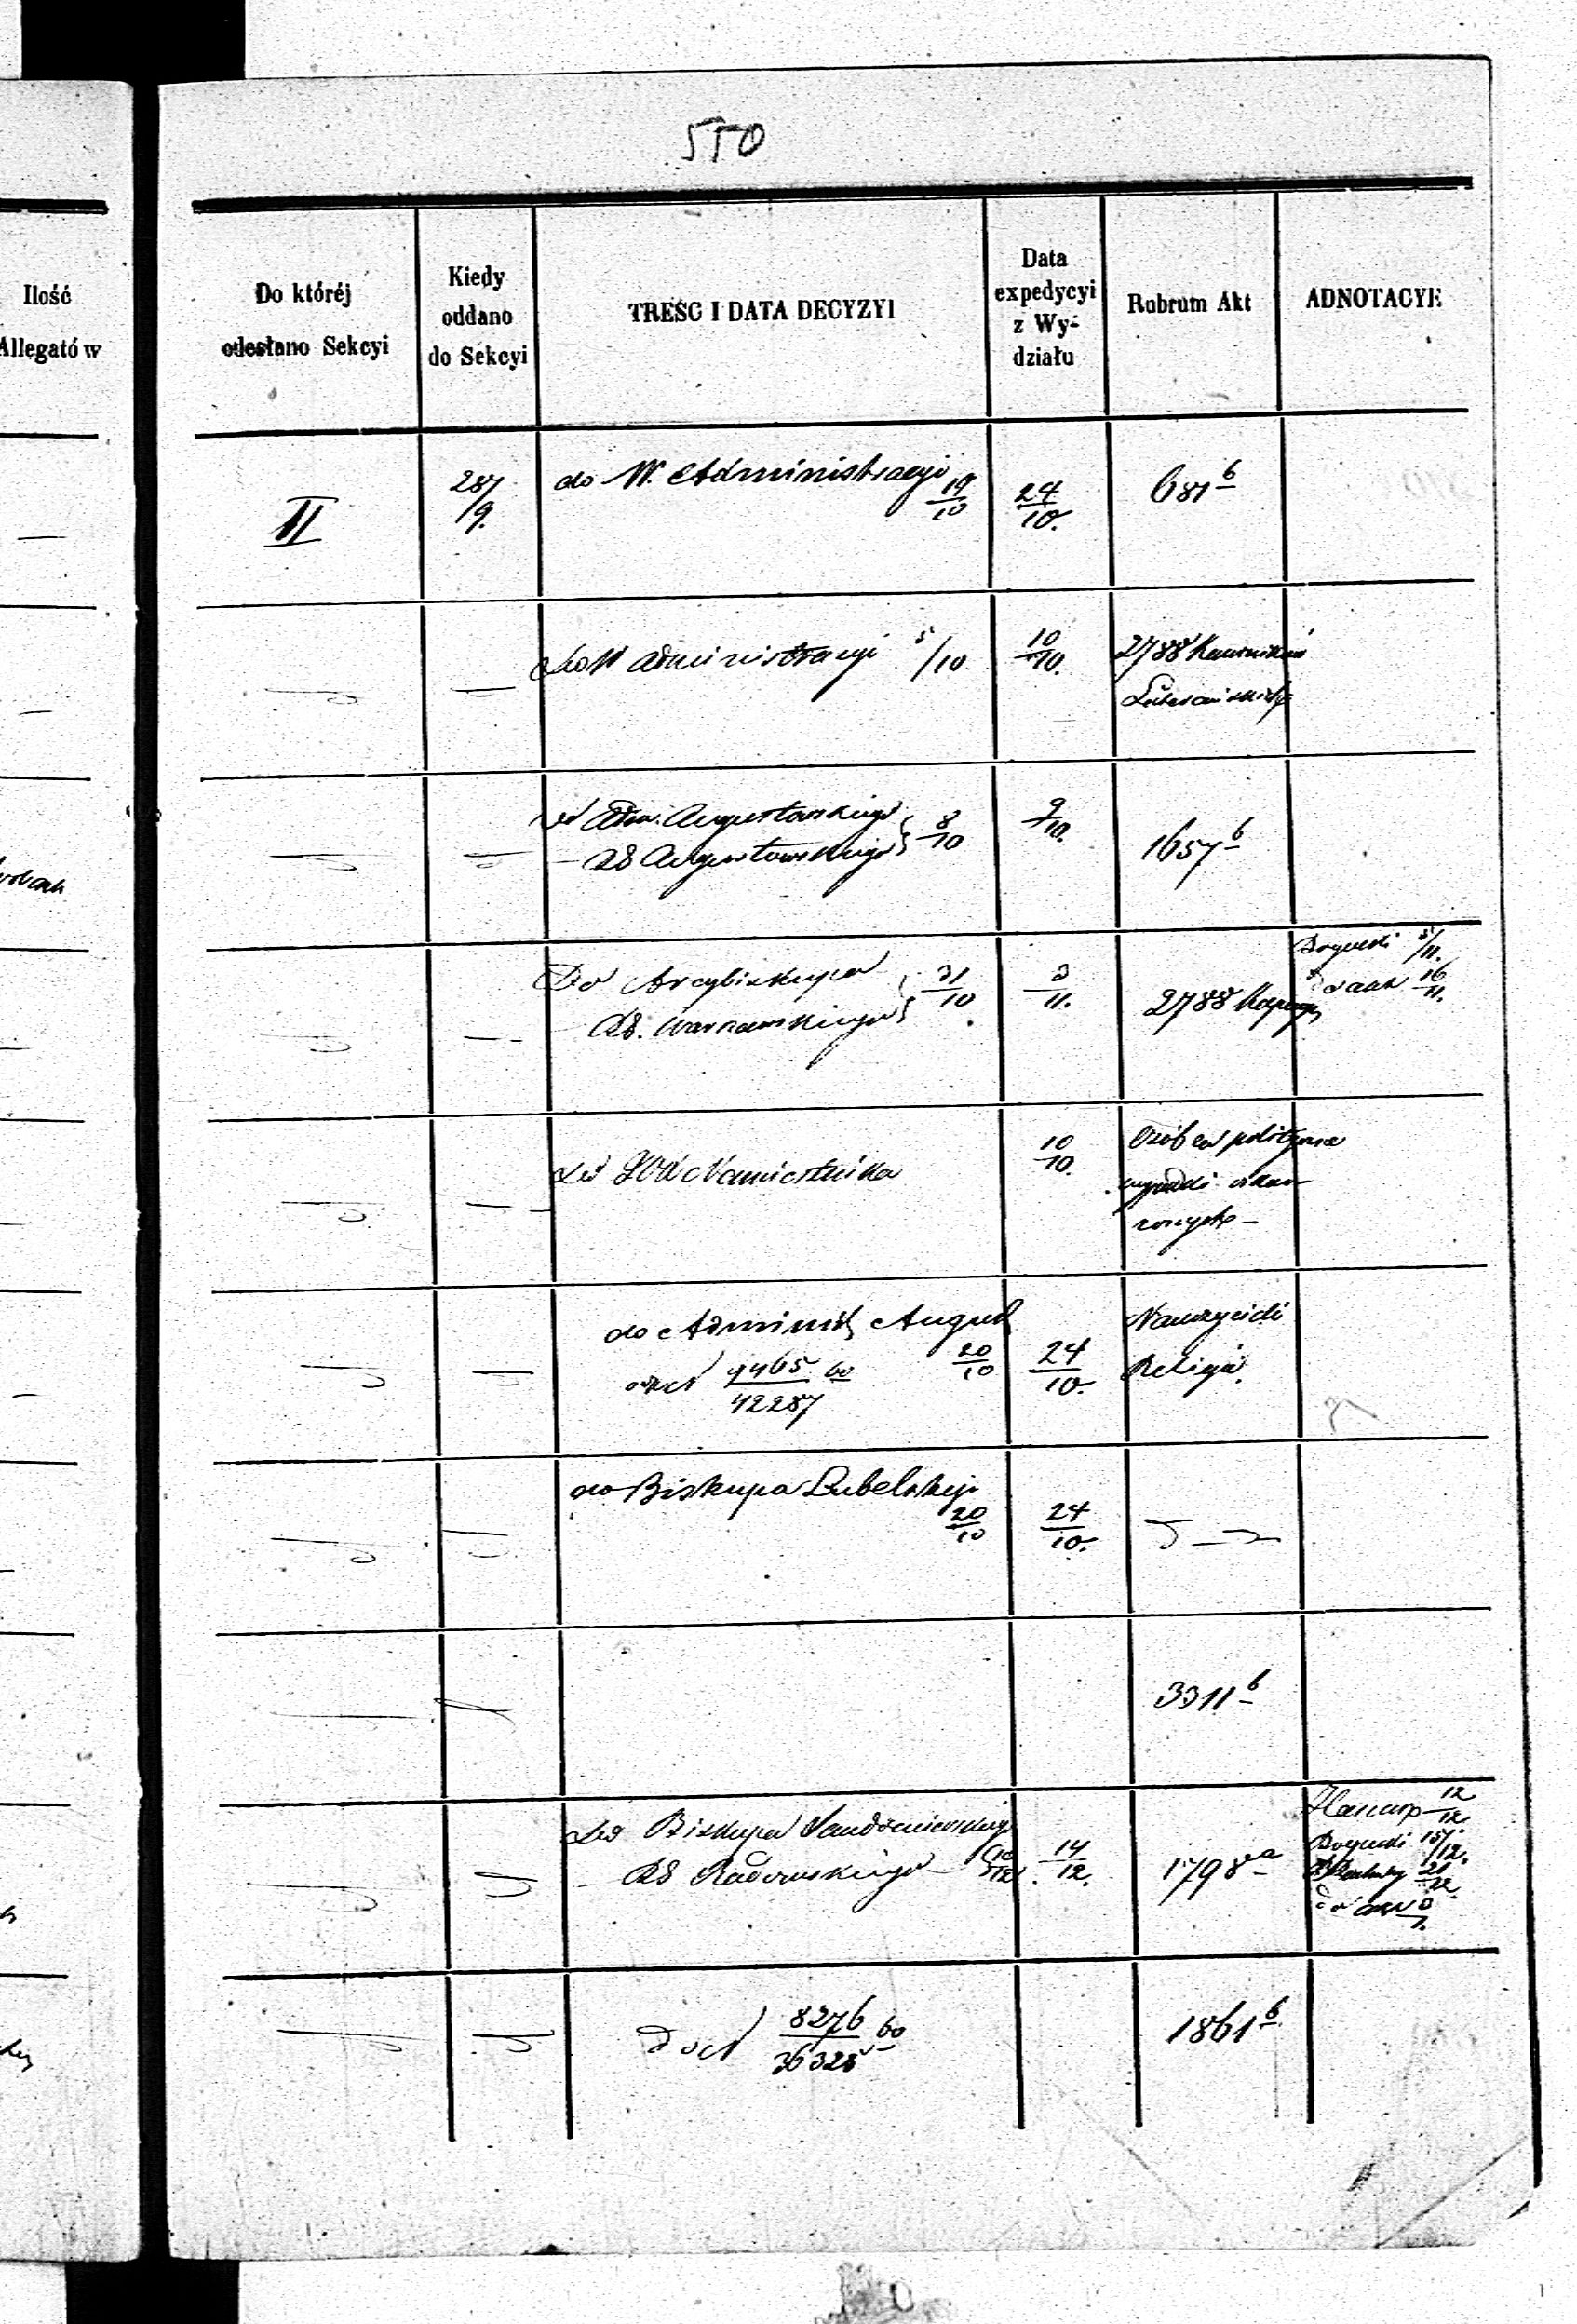 550
Ilość
Allegatów
Do któréj
odesłano Sekcyi
Kiedy
oddano
do Sekcyi
TREŚĆ I DATA DECYZYI
Data
expedycyi
z Wy-
działu
Rubrum Akt
ADNOTACYE
II
28/9.
do W. Administracyi 19/10
24/10.
681 b
Do W Administracyi 5/10
10/10.
2788
Adm. Augustowskiego
RG Augustowskiego } 8/10
9/10.
1657 b
Do Arcybiskupa
RG. Warszawskiego } 31/10
3/11.
2788
Bogucki 5/11.
16/11.
Do JOW Namiestnika
10/10.
Osób za polityczne
do Administ August
20/10
4465/42287 60
24/10.
Nauczyciele
Religii.
do Biskupa Lubelskiego
20/10
24/10.
3311 b
Do Biskupa Sandomierskiego
RG Radomskiego 10/12
14/12.
1798 a
12/12.
Bogucki 15/12.
21/12.
8276/36328 60
1861 b